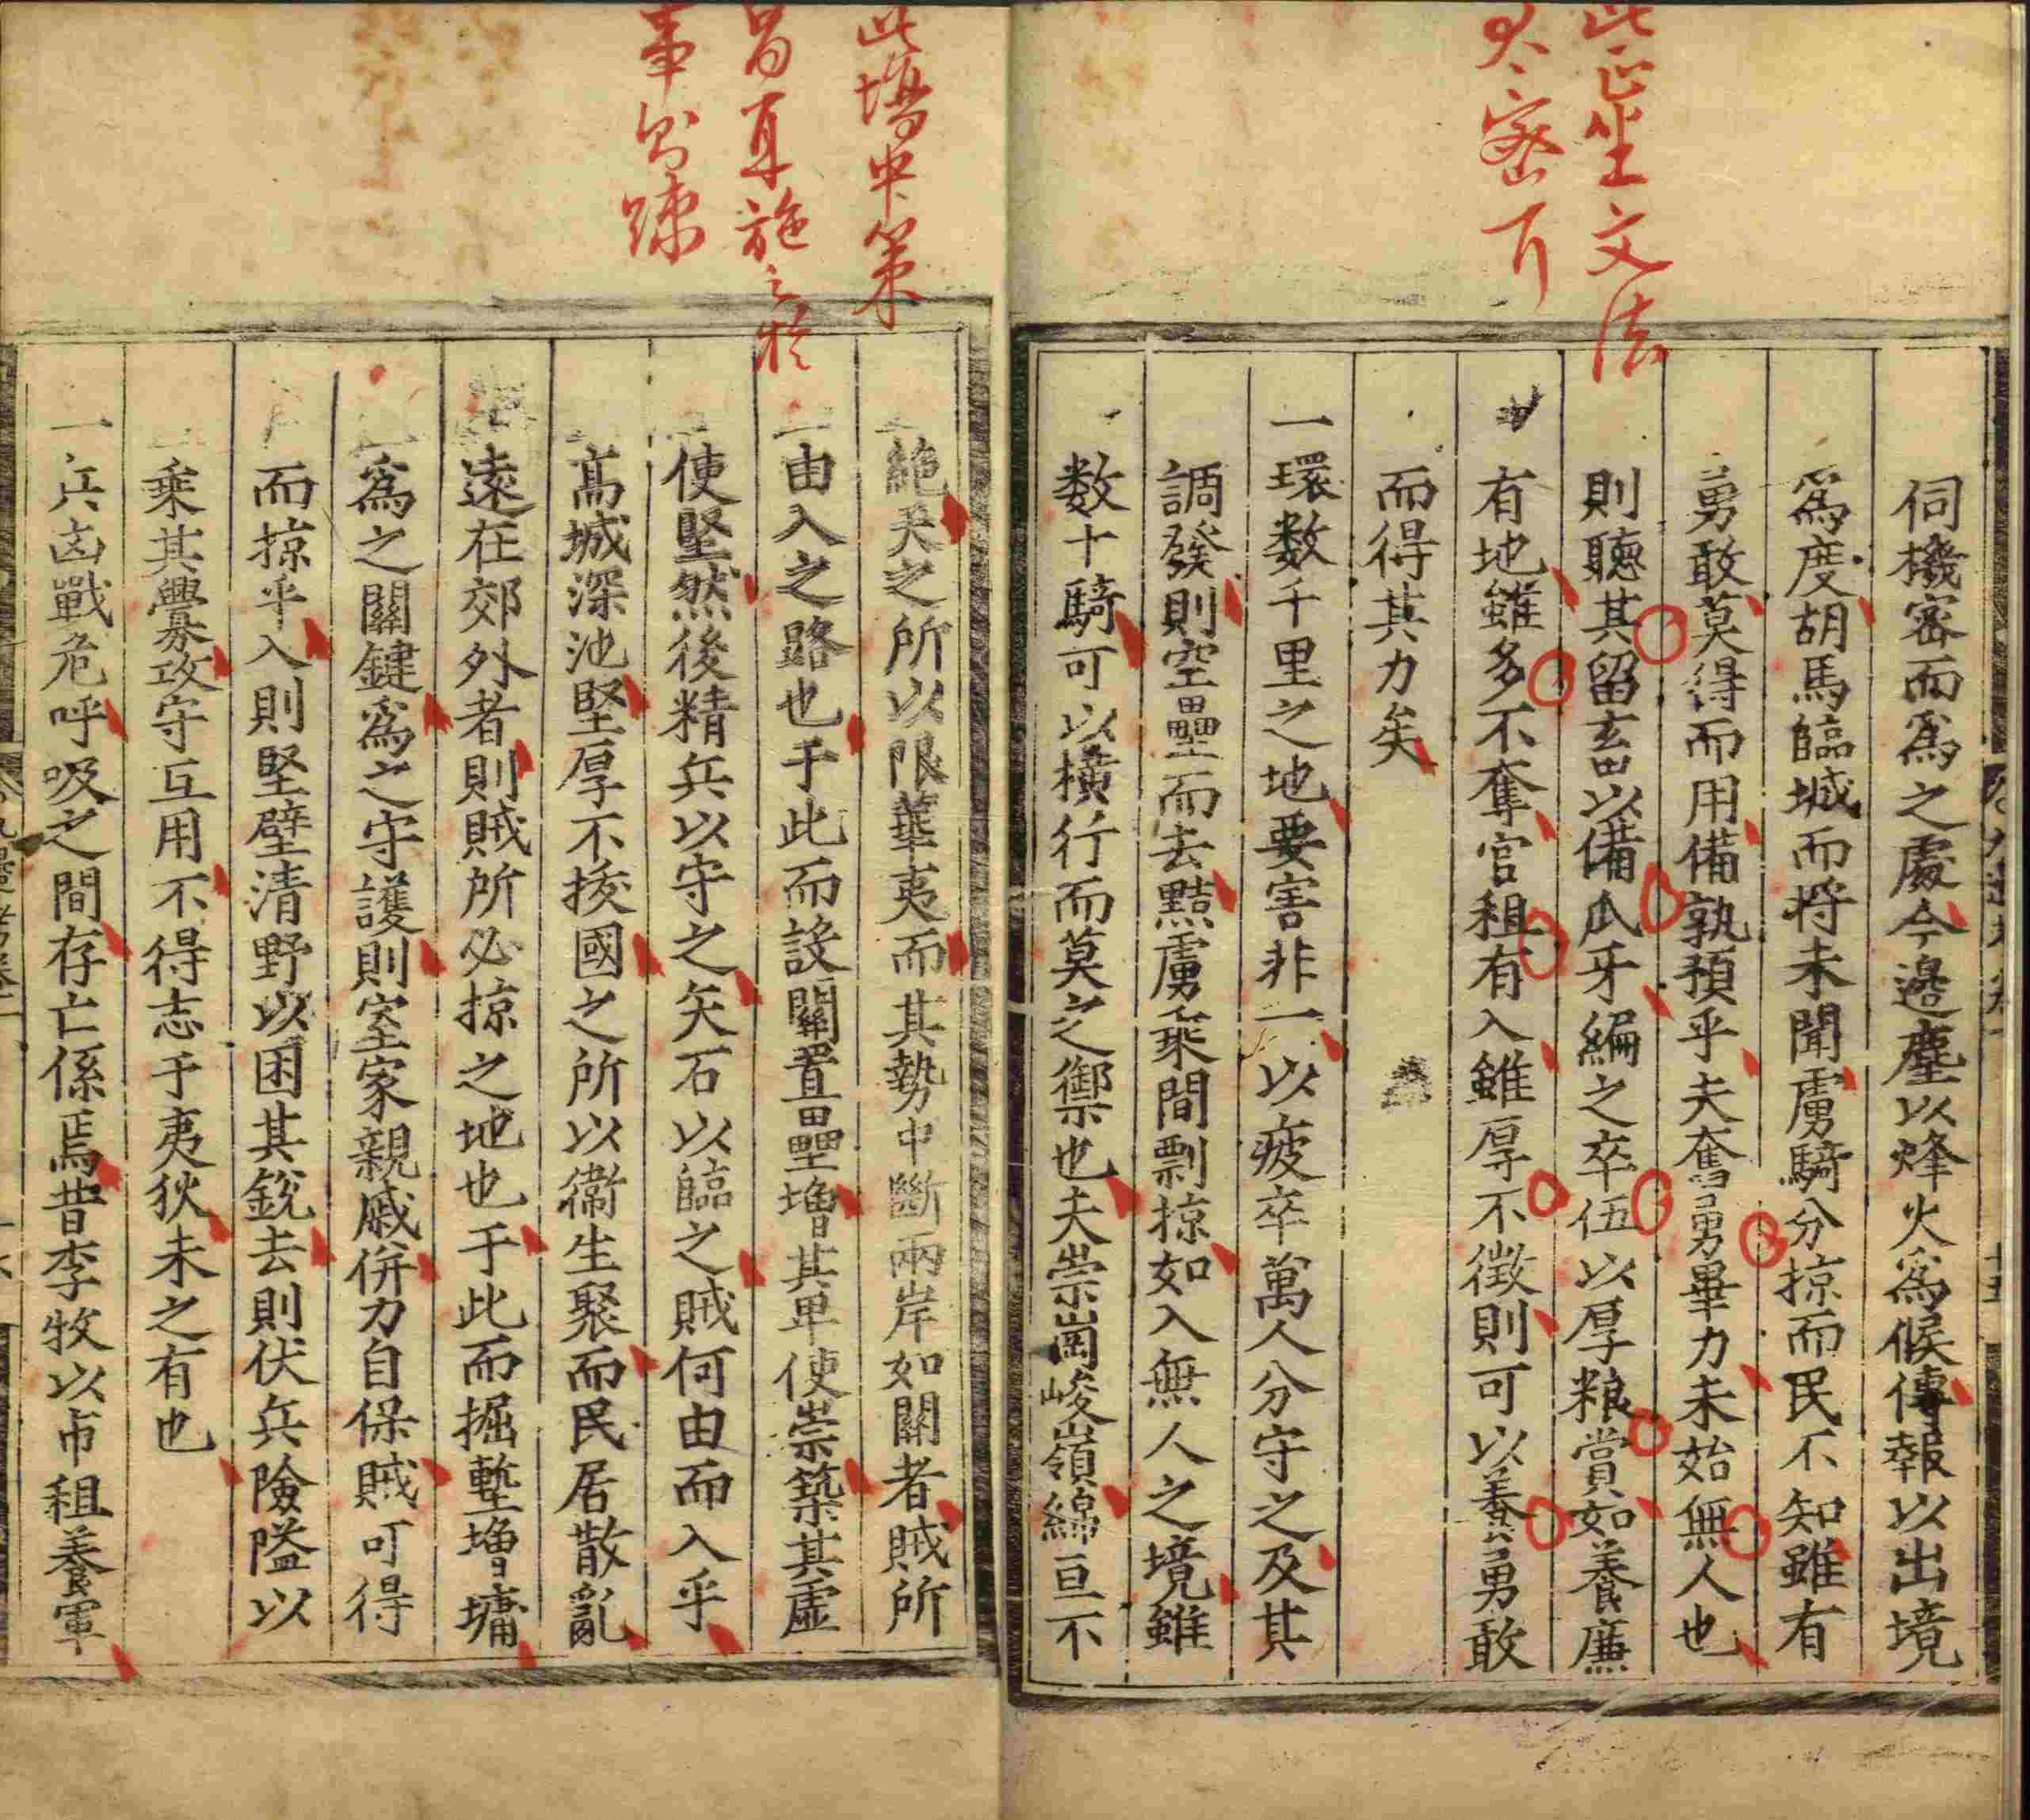 此正坐文法
太密耳
伺機密而爲之處今邊塵以烽火爲候傳報以出境
爲度胡馬臨城而將未聞虜騎分掠而民不知雖有
勇敢莫得而用備孰預乎夫奮勇畢力未始無人也
則聽其留畜以備爪牙編之卒伍以厚粮賞如養廉
有地雖多不奪官租有入雖厚不徵則可以養勇敢
而得其力矣
一環数千里之地要害非一以疲卒萬人分守之及其
調發則空壘而去黠虜乘間剽掠如入無人之境雖
数十騎可以橫行而莫之禦也夫崇岡峻嶺綿亘不
此墻中策
耳施之於
事勢疎
絶天之所以限華夷而其勢中斷兩岸如關者賊所
由入之路也于此而設關置壘增其卑使崇築其虛
使堅然後精兵以守之矢石以臨之賊何由而入乎
髙城深池堅厚不拔國之所以衛生聚而民居散亂
遠在郊外者則賊所必掠之地也于此而掘塹增墉
爲之關鍵爲之守護則室家親戚併力自保賊可得
而掠乎入則堅壁清野以困其銳去則伏兵險隘以
乘其釁攻守互用不得志于夷狄未之有也
一兵凶戰危呼吸之間存亡係焉昔李牧以市租養軍